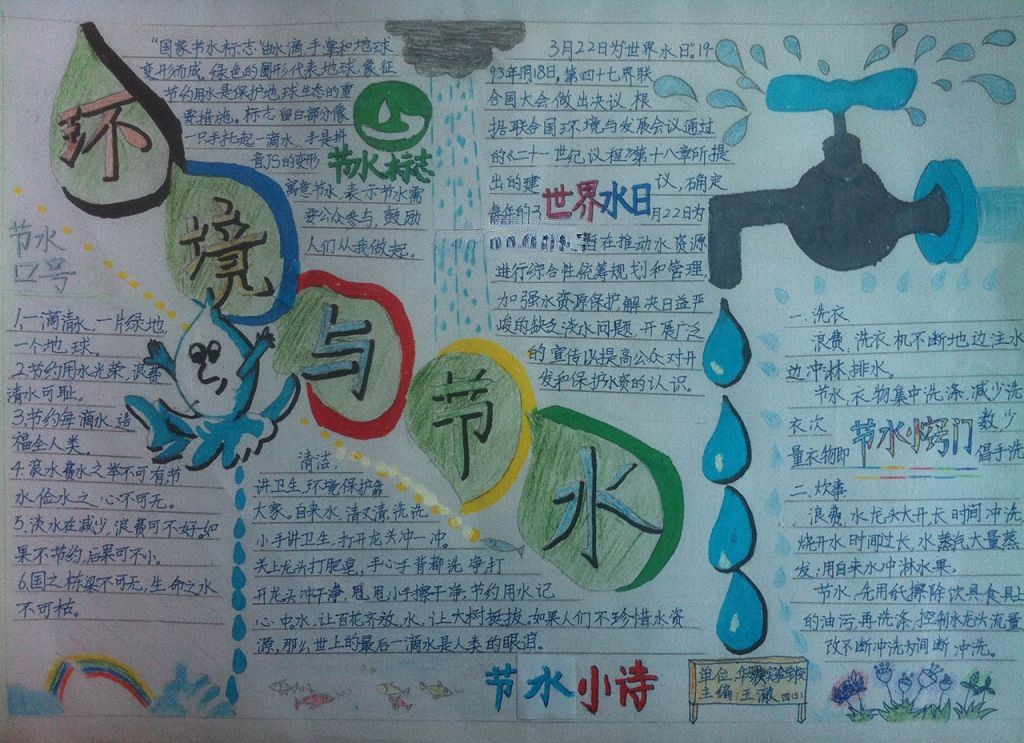 环境与节水
"国家节水标志"由水滴,手掌和地球
变形而成。绿色的圆形代表地球,象征
节约用水是保护地球生态的重
要措施。标志留白部分像
一只手托起一滴水,手是拼
音JS的变形
寓意节水,表示节水需
要公众参与,鼓励
人们从我做起。
节水标志
3月22日为"世界水日"。19
93年1月18日,第四十七界联
合国大会做出决议,根
据联合国环境与发展会议通过
的《二十一世纪议程》第十八章所提
出的建议,确定
每年的3月22日为
旨在推动水资源
进行综合性统筹规划和管理,
加强水资源保护,解决日益严
峻的缺乏淡水问题,开展广泛
的宣传以提高公众对开
发和保护水资的认识。
世界水日
节水
口号
1,一滴清水,一片绿地,
一个地球。
2.节约用水光荣,浪费
清水可耻。
3.节约每滴水,造
福全人类。
4.浪水费水之举不可有,节
水俭水之心不可无。
5.淡水在减少,浪费可不好,如
果不节约,后果可不小。
6.国之栋梁不可无,生命之水
不可枯。
清洁,
讲卫生,环境保护靠
大家。自来水,清又清,洗洗
小手讲卫生,打开龙头冲一冲。
关上龙头打肥皂,手心手背都洗净,打
开龙头冲干净,甩甩小手擦干净,节约用水记
心中。水,让百花齐放,水,让大树挺拔。如果人们不珍惜水资
源,那么世上的最后一滴水是人类的眼泪。
节水小诗
一.洗衣
浪费:洗衣机不断地边注水
边冲淋,排水。
节水:衣物集中洗涤,减少洗
衣次数,少
量衣物即倡手洗
节水小窍门
二.炊事
浪费:水龙头大开,长时间冲洗
烧开水时间过长,水蒸气大量蒸
发,用自来水冲淋水果。
节水:先用纸擦除饮具食具上
的油污,再洗涤,控制水龙头流量,
改不断冲洗为间断冲洗。
单位
主编:王